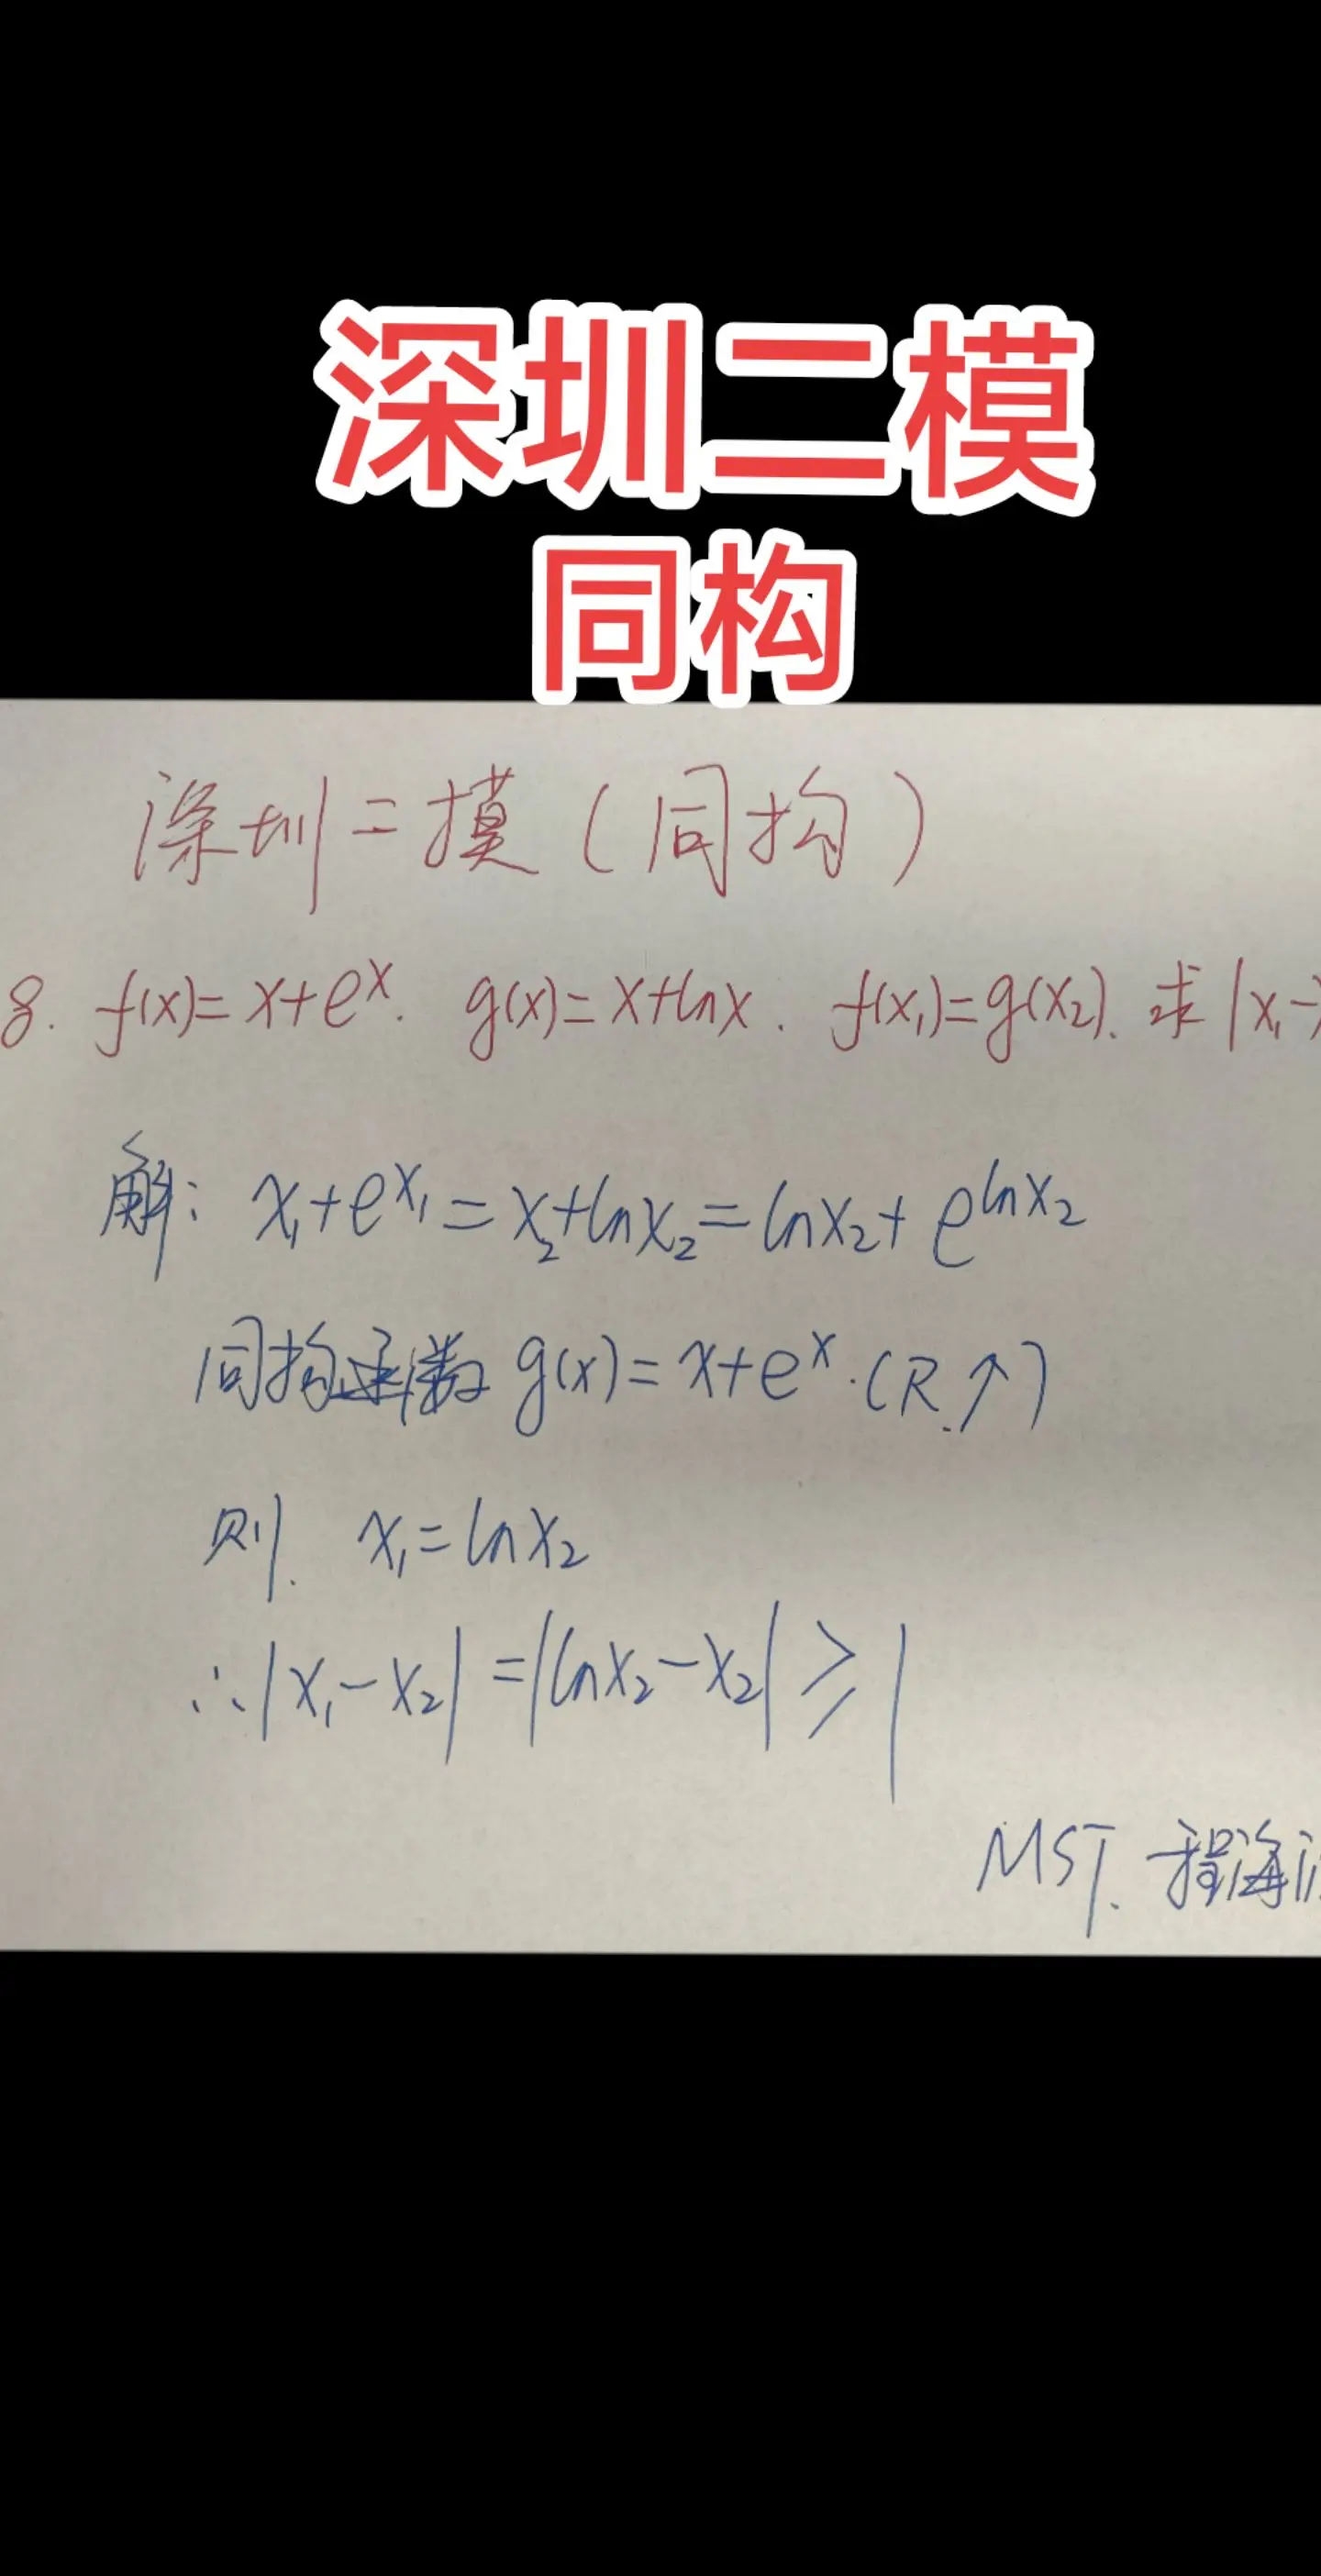 深圳二模
同构
深圳二摸(同构)
8. f(x)=x+e^x. g(x)=x+lnx. f(x₁)=g(x₂). 求|x₁-
解: x₁+e^x₁=x₂+lnx₂=lnx₂+e^lnx₂
同构函数 g(x)=x+e^x.(R.↑)
则. x₁=lnx₂
∴|x₁-x₂|=|lnx₂-x₂|≥1
MST. 程海